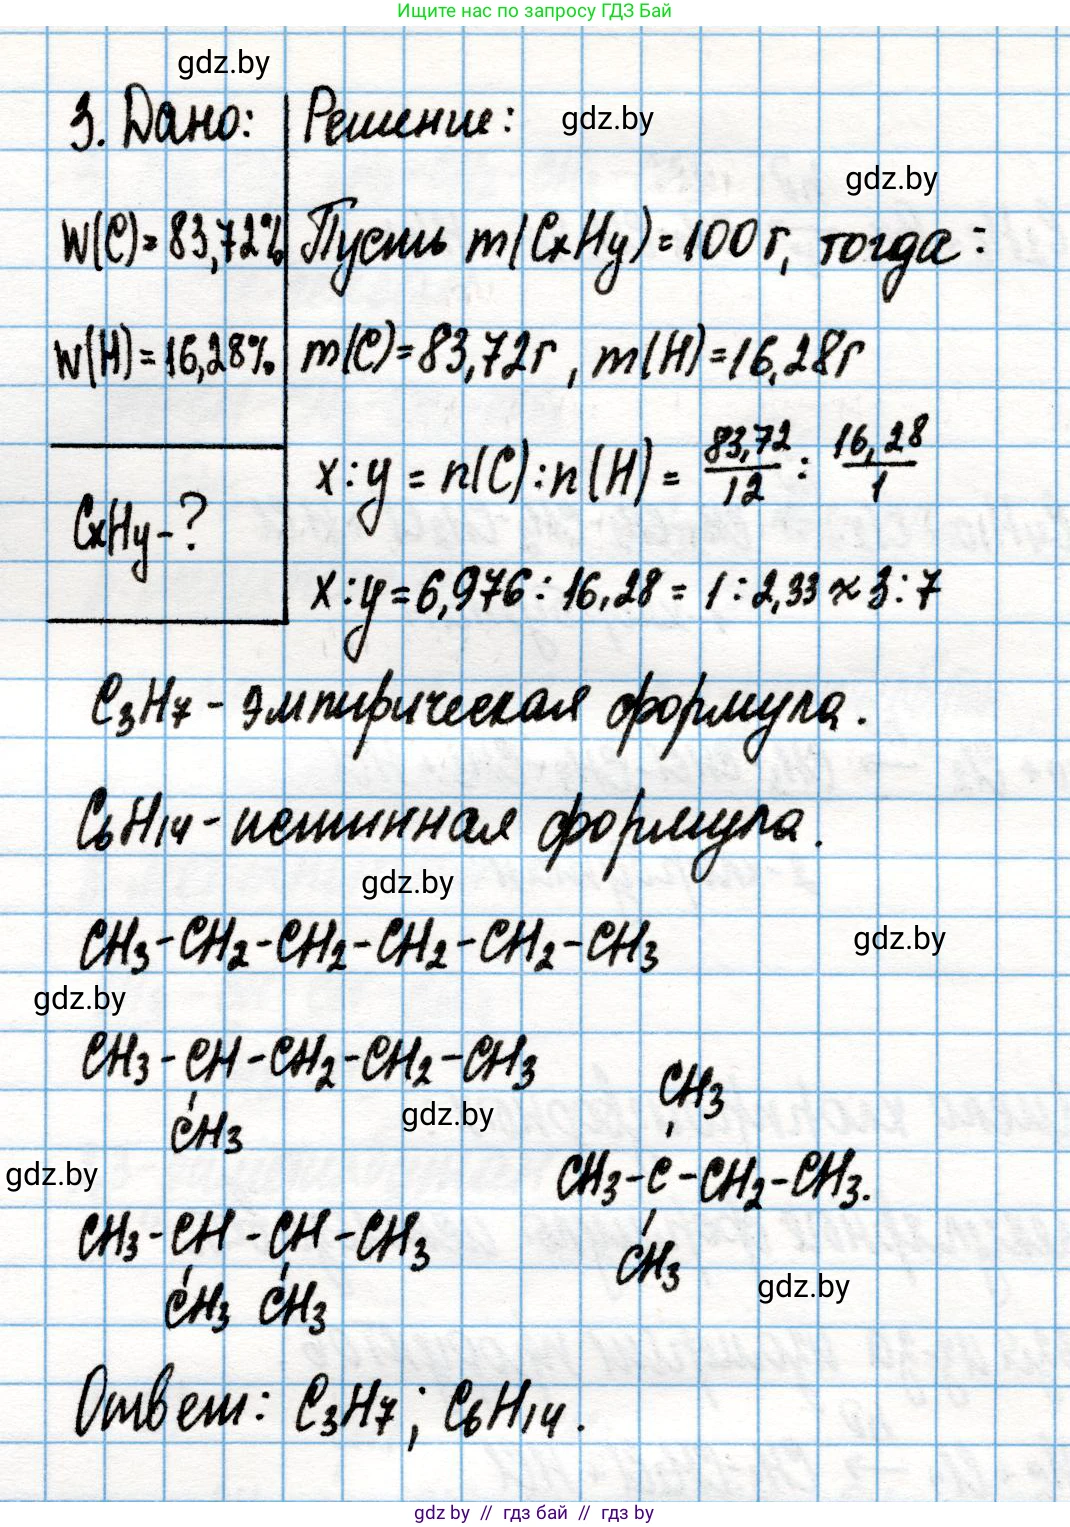 Ищите нас по запросу ГДЗ Бай
gdz.by
3. Дано: Решение:
gdz.by
gdz.by
W(C)=83,72% Пусть m(CxHy)=100г, тогда:
W(H)=16,28% m(C)=83,72г, m(H)=16,28г
x:y = n(C):n(H) = 83,72/12 : 16,28/1
CxHy-?
x:y=6,976:16,28 = 1:2,33≈3:7
C3H7 - эмпирическая формула.
C6H14 - истинная формула.
gdz.by
CH3-CH2-CH2-CH2-CH2-CH3
gdz.by
gdz.by
CH3-CH-CH2-CH2-CH3
CH3
CH3
gdz.by
gdz.by
CH3-C-CH2-CH3.
CH3-CH-CH-CH3
CH3
gdz.by
CH3 CH3
Ответ: C3H7; C6H14.
gdz.by // гдз бай // gdz.by